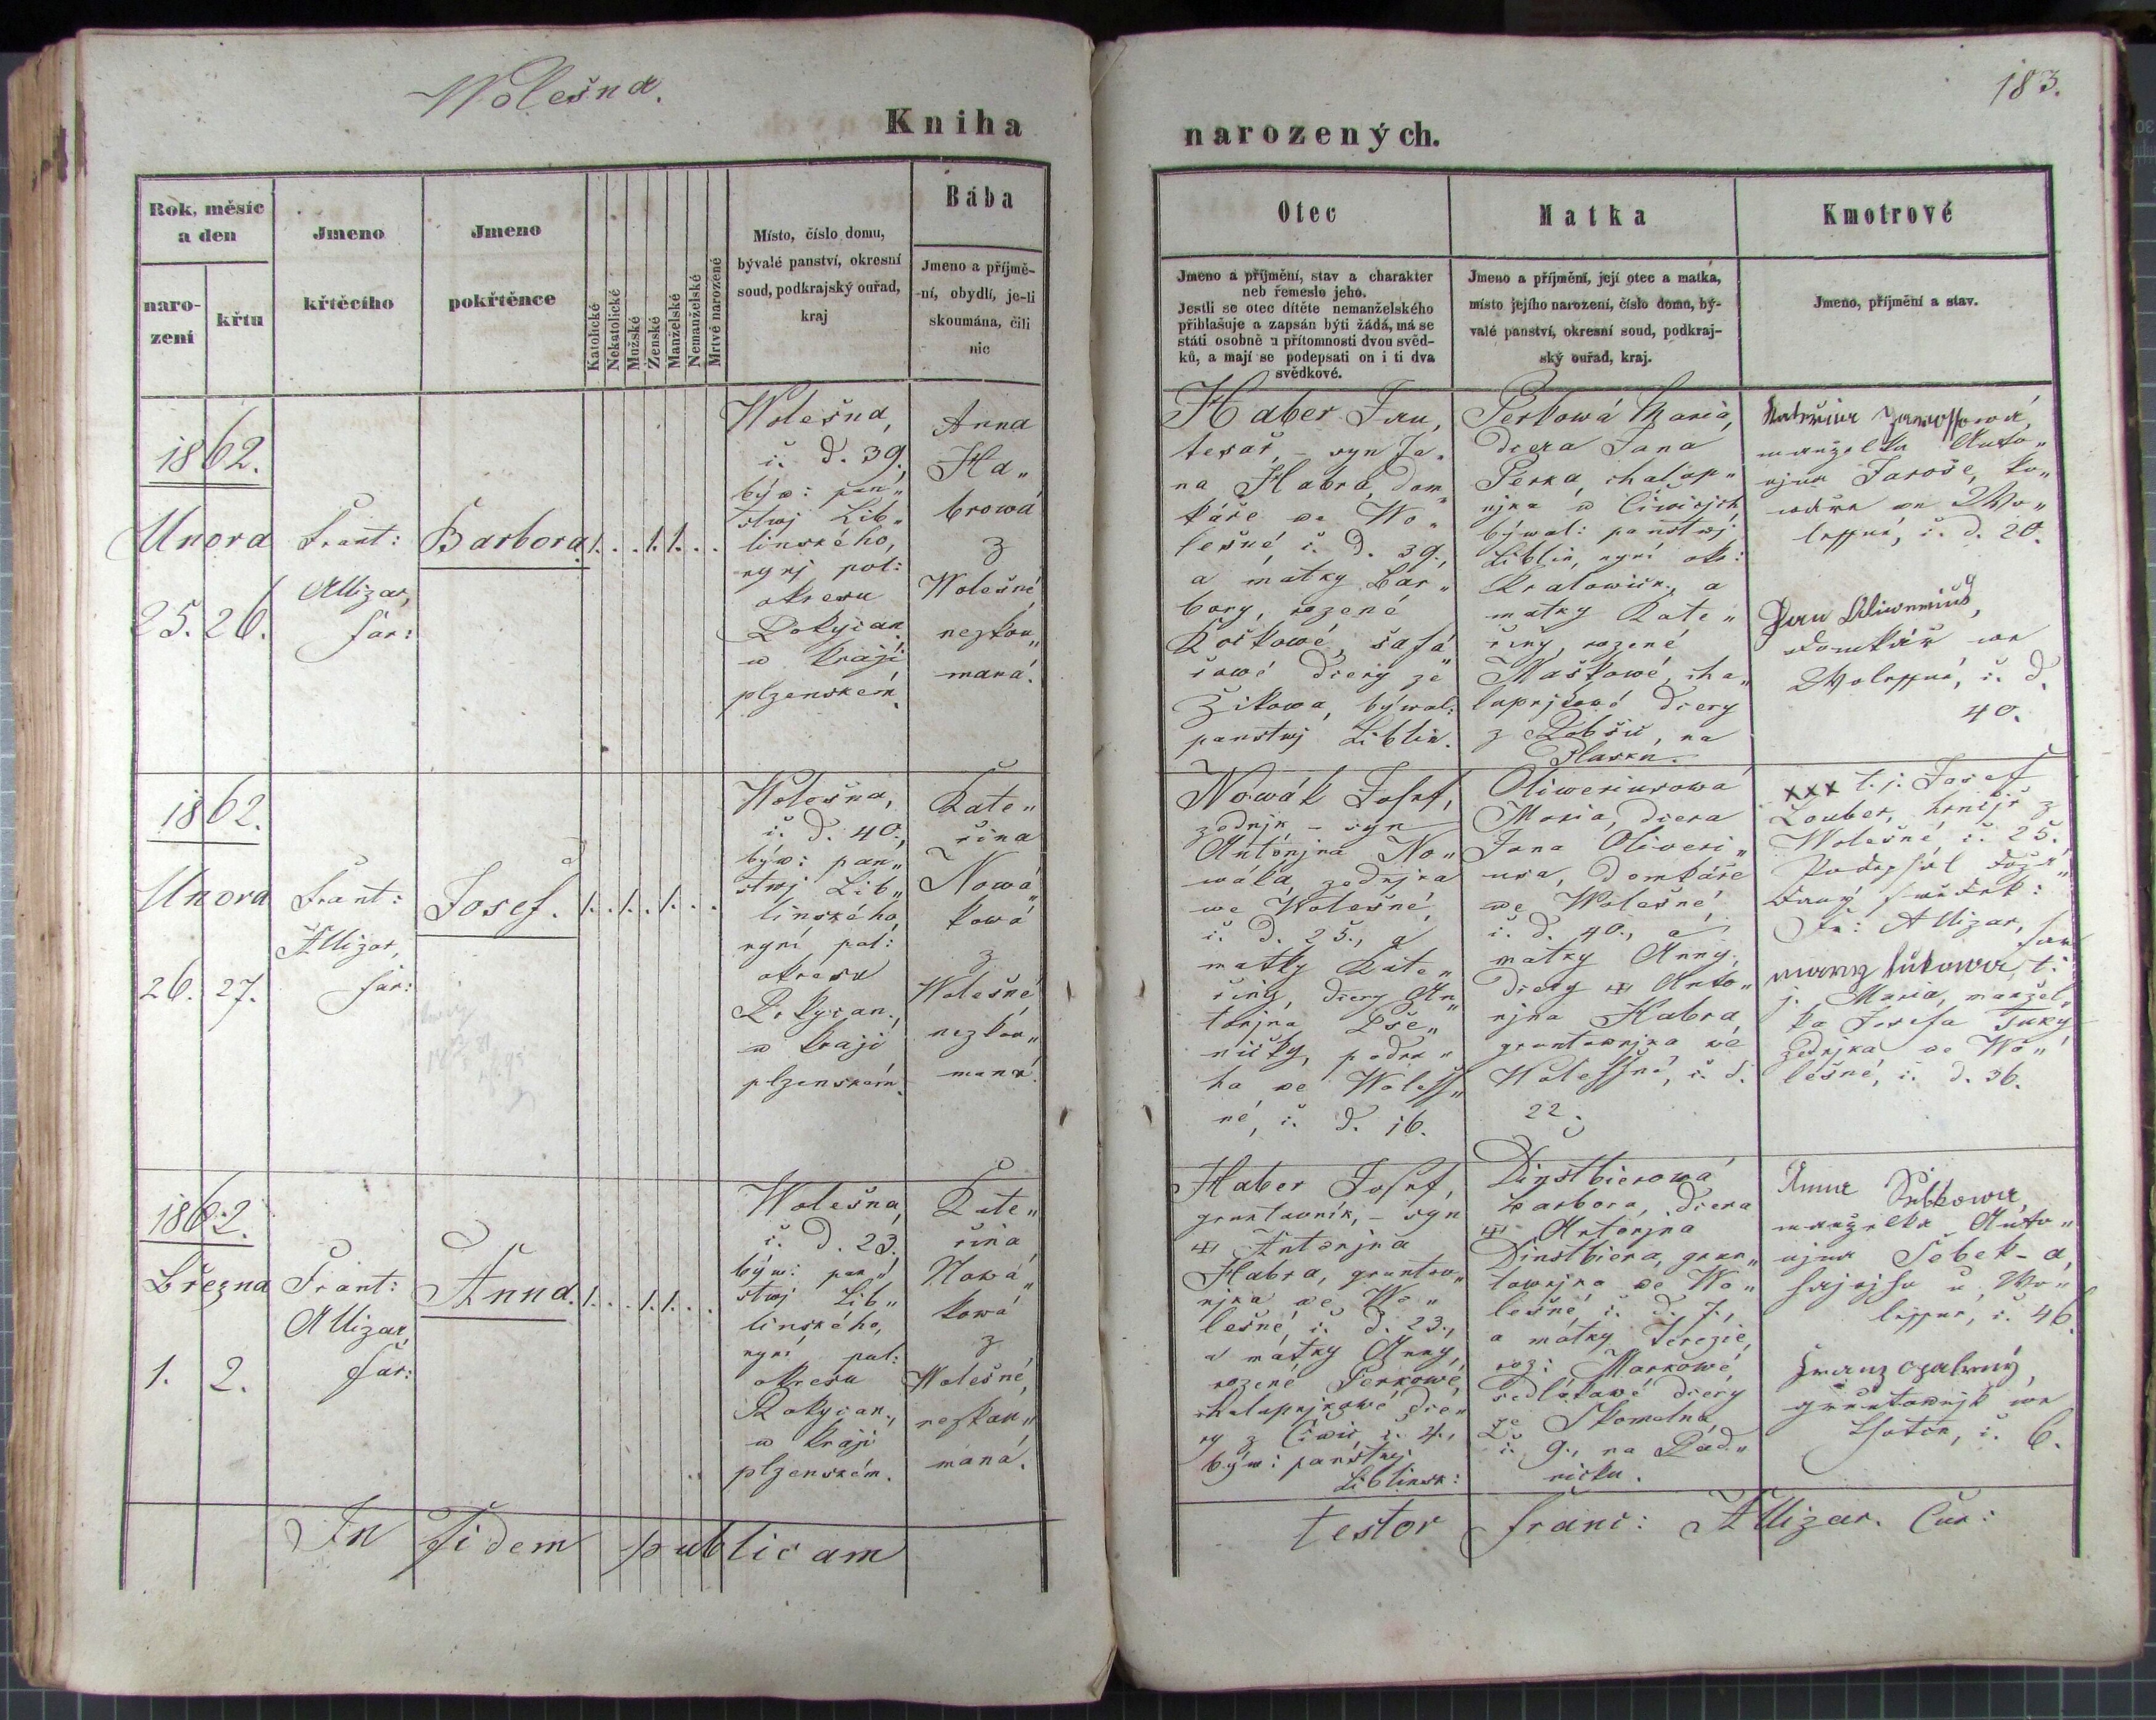 Wolešna.
183.
Kniha
narozených.
Rok, měsíc
a den
naro-
zení
křtu
Jmeno
křtěcího
Jmeno
pokřtěnce
Katolické
Nekatolické
Mužské
Ženské
Manželské
Nemanželské
Mrtvé narozené
Místo, číslo domu,
bývalé panství, okresní
soud, podkrajský ouřad,
kraj
Bába
Jmeno a příjmě-
-ní, obydlí, je-li
skoumána, čili
nic
Otec
Jmeno a příjmění, stav a charakter
neb řemeslo jeho.
Jestli se otec dítěte nemanželského
přiblašuje a zapsán býti žádá, má se
státi osobně u přítomnosti dvou svěd-
ků, a mají se podepsati on i ti dva
svědkové.
Matka
Jmeno a příjmění, její otec a matka,
místo jejího narození, číslo domu, bý-
valé panství, okresní soud, podkraj-
ský ouřad, kraj.
Kmotrové
Jmeno, příjmění a stav.
1862.
Unora
25. 26.
Frant:
Allizar,
far:
Barbora
1. . . 1. 1. . .
Wolešna,
č. d. 39.,
býw: pan„
stwj Lib„
linského,
nynj pol:
okresu
Rokycan.
w kraji
plzenském.
Anna
Ha„
browá
z
Wolešné
nezkou„
maná.
Haber Jan,
tesař, – syn Ja„
na Habra, dom„
káře we Wo„
lešné č. d. 39.,
a matky Bar„
bory, rozené
Kočkowé, šafá„
řowé dcery ze
Žikowa, býwal:
panstwj Liblin.
Perkowá Maria,
dcera Jana
Perka, chalup„
njka w Čiwicjch
býwal: panstwj
Liblin, nyní okr:
Kralowick., a
matky Kate„
řiny, rozené
Maškowé, cha„
lupnjkowé dcery
z Robčic, na
Plasku.
Kateřina Jarossowá,
manželka Anto„
njna Jaroše, ko„
wáře we Wo„
lessné, č. d. 20.
Jan Oliwerius,
domkář we
Wolessné, č. d.
40.
1862.
Unora
26. 27.
Frant:
Allizar,
far:
Josef.
1. . 1. . 1. . .
Wolešna,
č. d. 40.,
býw: pan„
stwj Lib„
linského,
nyní pol:
okresu
Rokycan.,
w kraji
plzenském.
Kate„
řina
Nowá„
kowá
z
Wolešné
nezkou„
maná.
Nowák Josef,
zednjk – syn
Antonjna No„
wáka, zednjka
we Wolešné,
č. d. 25., a
matky Kate„
řiny, dcery An„
tonjna Pše„
ničky, podru„
ha we Woless„
né, č. d. 16.
Oliweriusowa
Maria, dcera
Jana Oliveri„
usa, domkáře
we Wolešné,
č. d. 40., a
matky Anny,
dcery Anto„
njna Habra,
gruntownjka we
Wolessné, č. d.
22.
xxx t. j. Josef
Žouber, hrnčjř z
Wolešné č. 25.
Podepsal dožá„
daný swědek:
Fr: Allizar, far
t.
j. Maria, manžel„
ka Josefa Tuky
zednjka we Wo„
lešné, č. d. 36.
1862.
Března
1. 2.
Frant:
Allizar,
far:
Anna.
1. . . 1. 1. . .
Wolešna,
č. d. 23.,
býw: pan„
stwj Lib„
linského,
nyní pol:
okresu
Rokycan.,
w kraji
plzenském.
Kate„
řina
Nowá„
kowá
z
Wolešné,
nezkou„
maná.
Haber Josef,
gruntovník, – syn
Antonjna
Habra, gruntov„
njka we Wo„
lešné, č. d. 23.,
a matky Anny,
rozené Perkowé,
chalupnjkowé dce„
ry z Čiwic, č. 4.,
býw: panstwj
Liblinsk:
Dinstbierowá
Barbora, dcera
Antonjna
Dinstbiera, grun„
townjka we Wo„
lešné, č. d. 7.,
a matky Terezie,
roz: Markowé,
sedlákowé dcery
ze Skomelna,
č. 9., na Rad„
nicku.
Anna Šebkowá
manželka Anto„
njna Šebek-a,
hajnjho u Wo„
lessné, č. 46.
Franz opatrný,
gruntownjk we
Lhotce, č. 6.
In fidem publicam
testor Franc: Allizar. Cur: